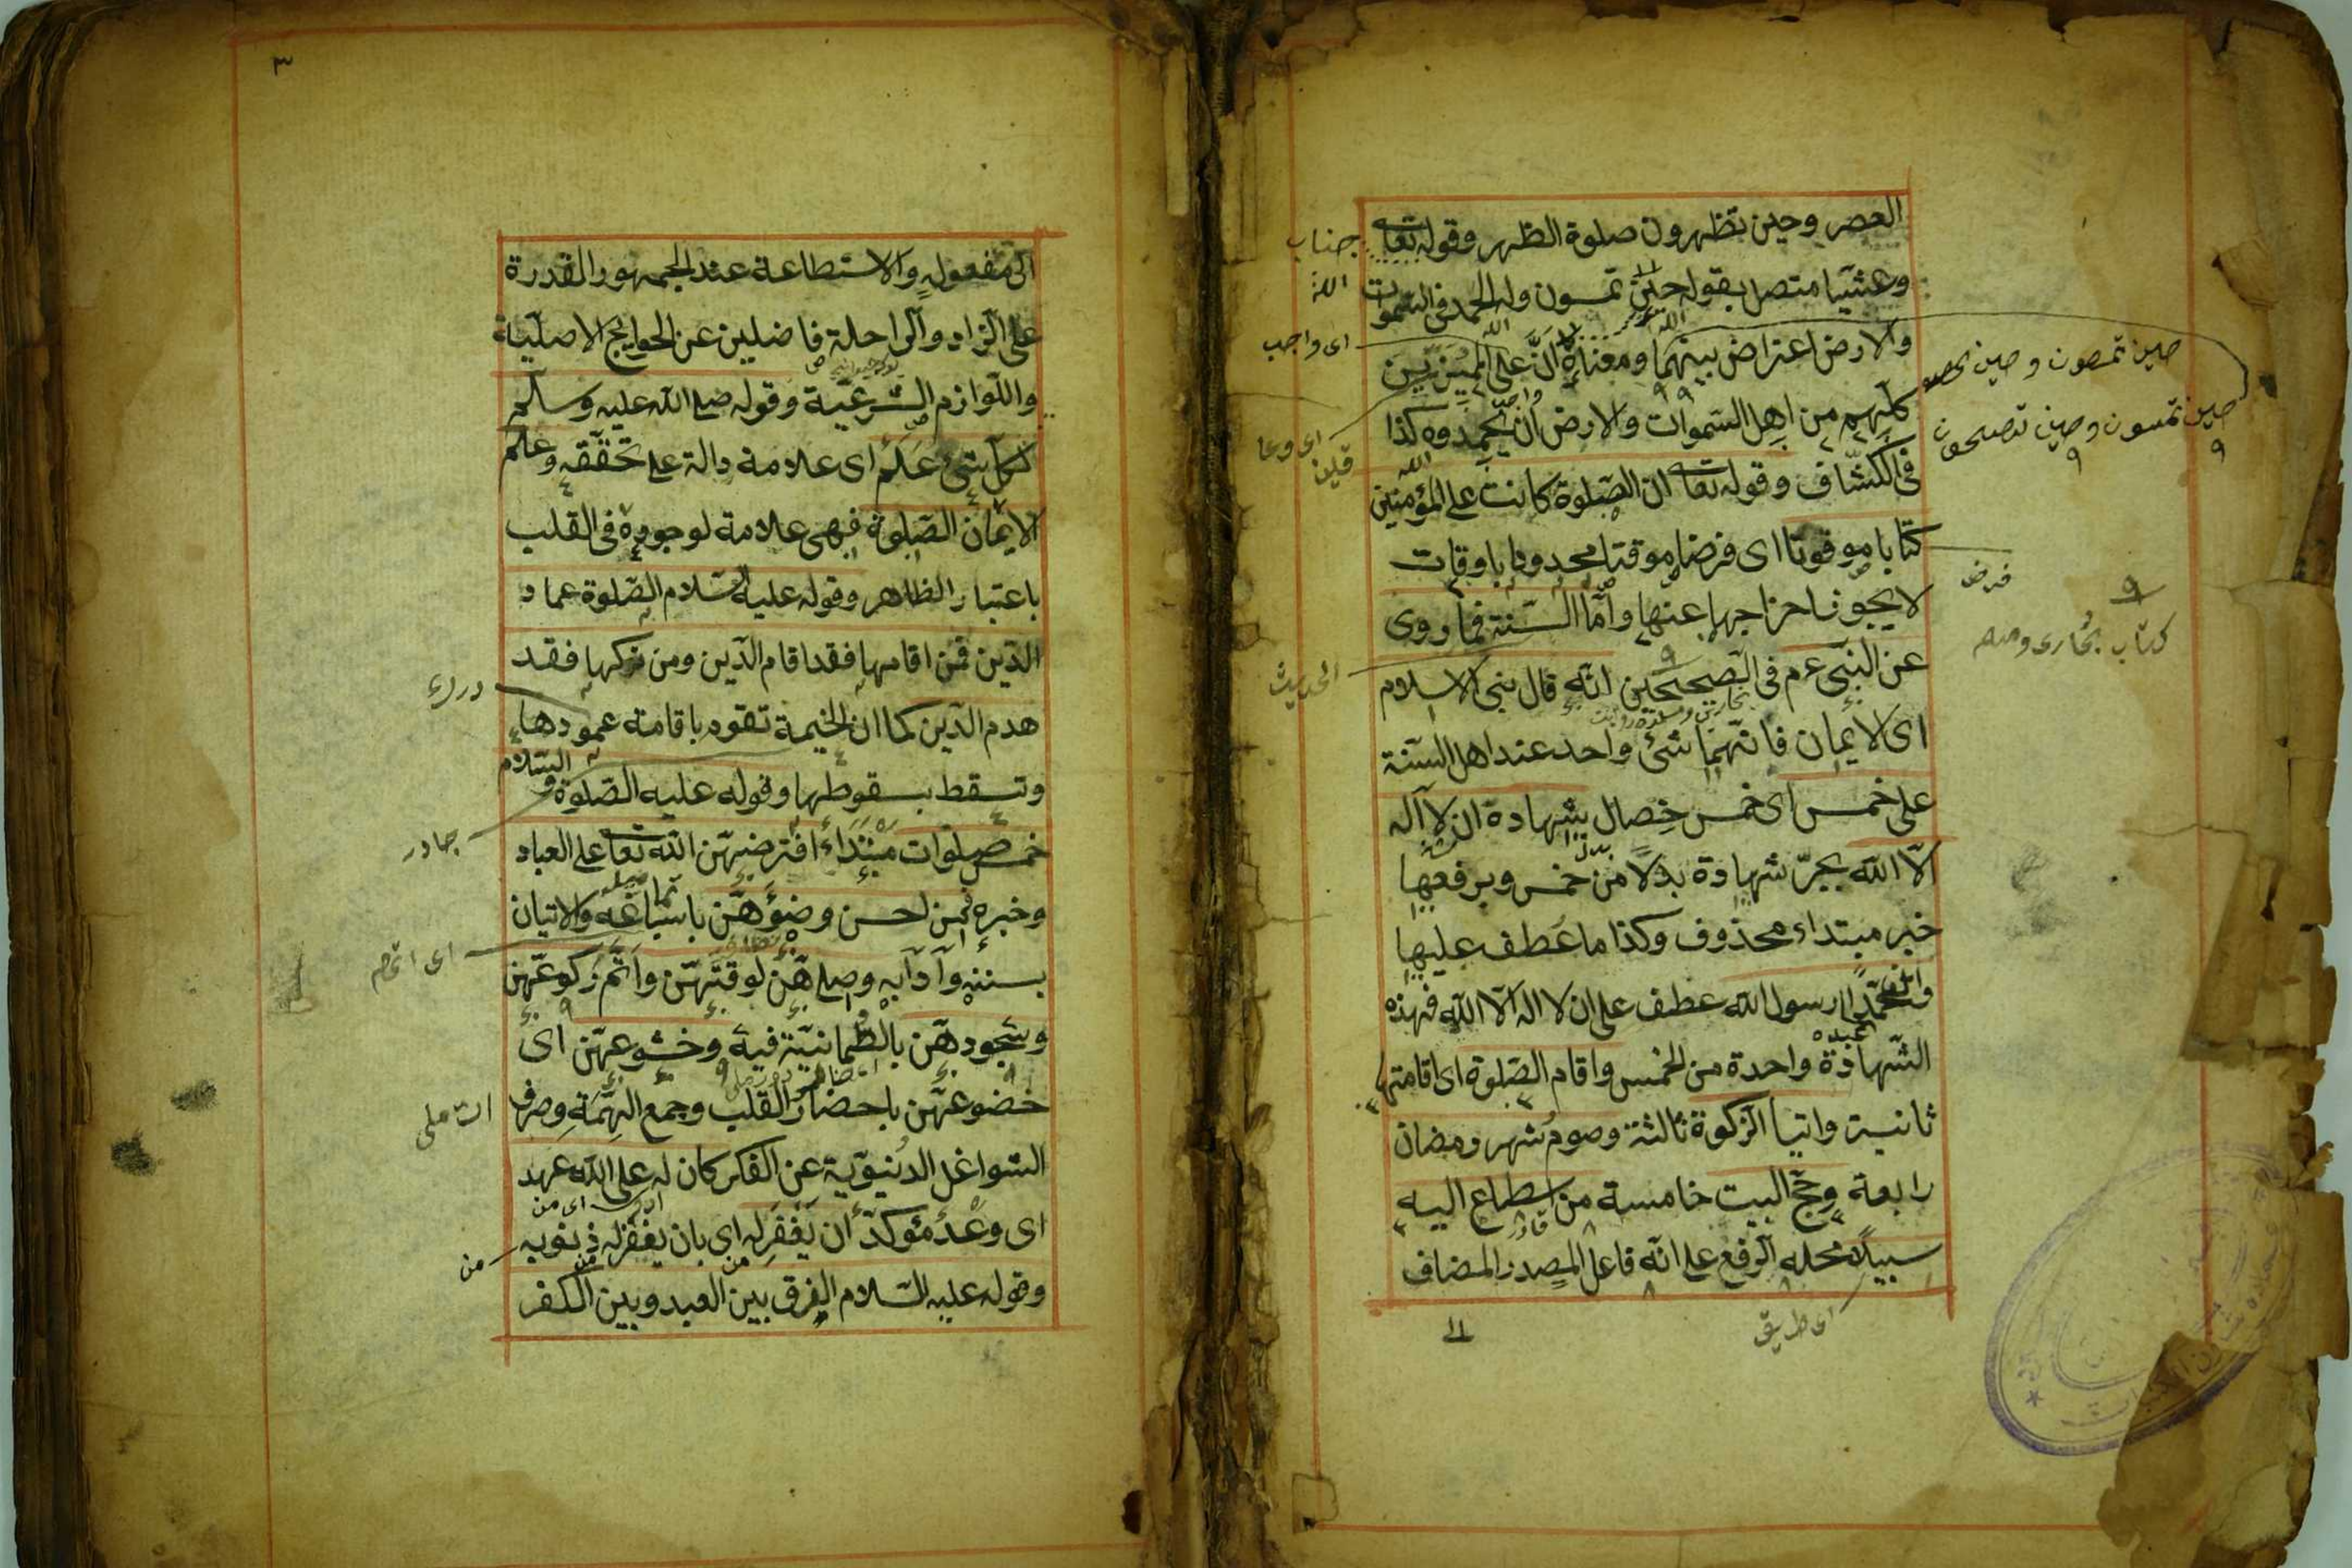 العصر وحين تظهرون صلوة الظهر وقوله تعا
وعشيا متصل بقوله حين تمسون وله الحمد فى السموات
والارض اعتراض بينهما ومعناه ان على المميزين
كلهم من اهل السموات والارض ان يحمدوه كذا
فى الكشاف وقوله تعا ان الصلوة كانت على المؤمنين
كتابا موقوتا اى فرضا موقتا محدودا باوقات
لا يجوز اخراجها عنها واما السنة فما روى
عن النبى عم فى الصحيحين انه قال بنى الاسلام
اى الايمان فانهما شئ واحد عند اهل السنة
على خمس اى خمس خصال شهادة ان لا اله
الا الله بجر شهادة بدلا من خمس وبرفعها
خبر مبتداء محذوف وكذا ما عطف عليها
وان محمدا رسول الله عطف على ان لا اله الا الله فهذه
الشهادة واحدة من الخمس واقام الصلوة اى اقامتها
ثانية وايتا الزكوة ثالثة وصوم شهر رمضان
رابعة وحج البيت خامسة من اسطاع اليه
سبيلا محله الرفع على انه فاعل المصدر المضاف
اى طريق
الى
جناب
الله
اى واجب
الحديث
حين تمسون وحين تصبحون
فرض
كتاب بخارى ومسلم
٣
الى مفعوله والاستطاعة عند الجمهور القدرة
على الزاد والراحلة فاضلين عن الحوايج الاصلية
واللوازم الشرعية وقوله صلى الله عليه وسلم
لكل شئ علم اى علامة دالة على تحققه وعلم
الايمان الصلوة فهى علامة لوجوده فى القلب
باعتبار الظاهر وقوله عليه السلام الصلوة عماد
الدين فمن اقامها فقد اقام الدين ومن تركها فقد
هدم الدين كما ان الخيمة تقوم باقامة عمودها
وتسقط بسقوطها وقوله عليه الصلوة و السلام
خمس صلوات مبتداء افترضهن الله تعا على العباد
وخبره فمن احسن وضوءهن باسباغه والاتيان
بسننه وآدابه وصلاهن لوقتهن واتم ركوعهن
وسجودهن بالطمانينة فيه وخشوعهن اى
خضوعهن باحضار القلب وجمع الهمة وصرف
الشواغل الدنيوية عن الفكر كان له على الله عهد
اى وعد مؤكد ان يغفر له اى بان يغفر له ذنوبه
وقوله عليه السلام الفرق بين العبد وبين الكفر
چادر
من